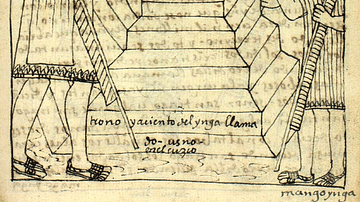 trono yaciento del ynga llama
do-usno-
enel cuzco
mango ynga